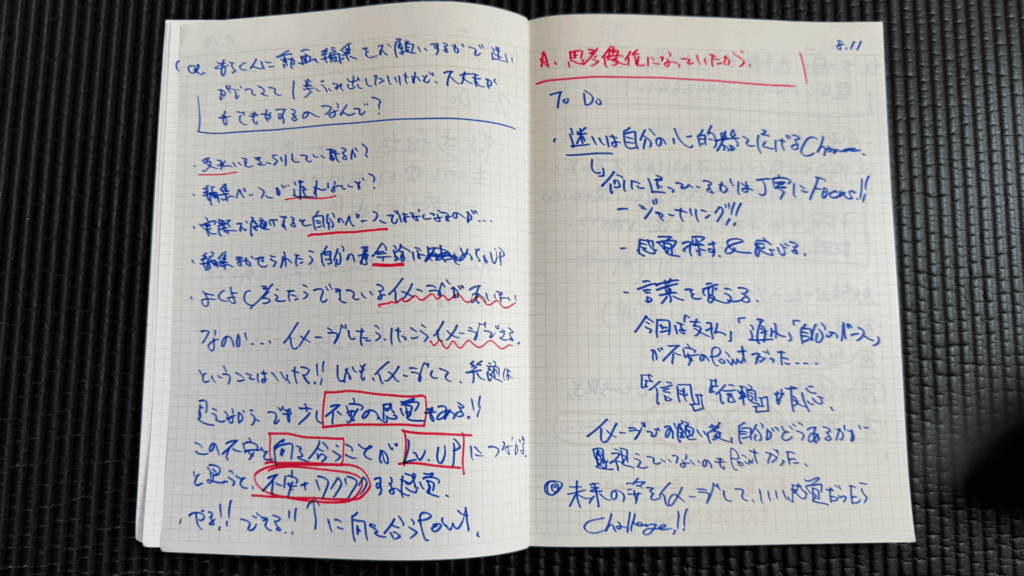 Q. そらくんに動画編集をお願いするかで迷い
がでてきて1歩ふみ出したいけれど、大丈夫か
もてもやするの なんで?
・支払いをきっちりしているか?
・編集ペースが遅れないか?
・実際お願いすると自分のペースではなくなるのが…
・編集まかせられたら自分の 余 UP
・よくよく考えたらできているイメージがあいまい
なのか… イメージしたら、けっこうイメージできる。
ということはいける!! しかも、イメージして、笑顔は
見えるから、でも少し不安の感覚もある!!
この不安と向き合うことがLv.UPにつながる
と思うと、不安+ワクワクする感覚。
・やる!! できる!! ↑に向き合うPoint.
8.11
A. 思考優位になっていたから。
To Do
・迷いは自分の心的器を広げるChance.
↳何に迷っているかは丁寧にFocus!!
－ジャーナリング!!
－感覚探す&感じる。
－言葉を変える。
今回は「支払」、「遅れ」「自分のペース」
が不安のPointだった….
『信用』『信頼』が反応。
イメージでお願い後、自分がどうあるかが
見えていないのもPointだった。
未来の姿をイメージして、いい感覚だったら
Challenge!!